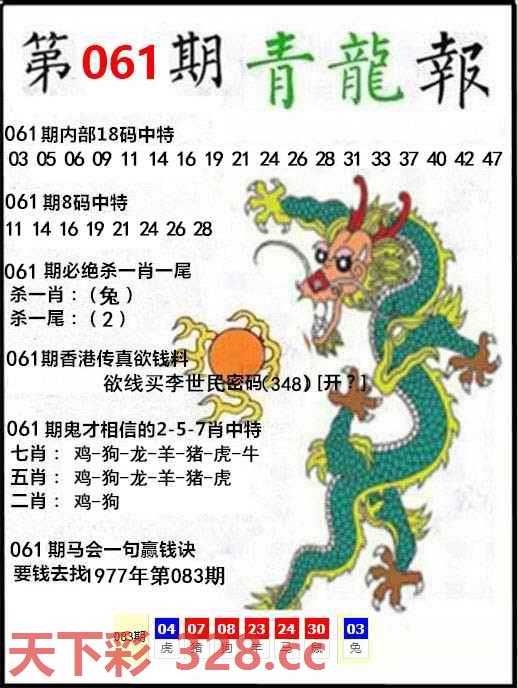 第061期青龍報
061期内部18码中特
03 05 06 09 11 14 16 19 21 24 26 28 31 33 37 40 42 47
061期8码中特
11 14 16 19 21 24 26 28
061期必绝杀一肖一尾
杀一肖：(兔)
杀一尾：(2)
061期香港传真欲钱料
欲线买李世民密码(348)[开?]
061期鬼才相信的2-5-7肖中特
七肖：鸡-狗-龙-羊-猪-虎-牛
五肖：鸡-狗-龙-羊-猪-虎
二肖：鸡-狗
061期马会一句赢钱诀
要钱去找1977年第083期
083期 04 07 08 23 24 30 03
虎 猪 狗 羊 马 鼠 兔
天下彩 328.cc